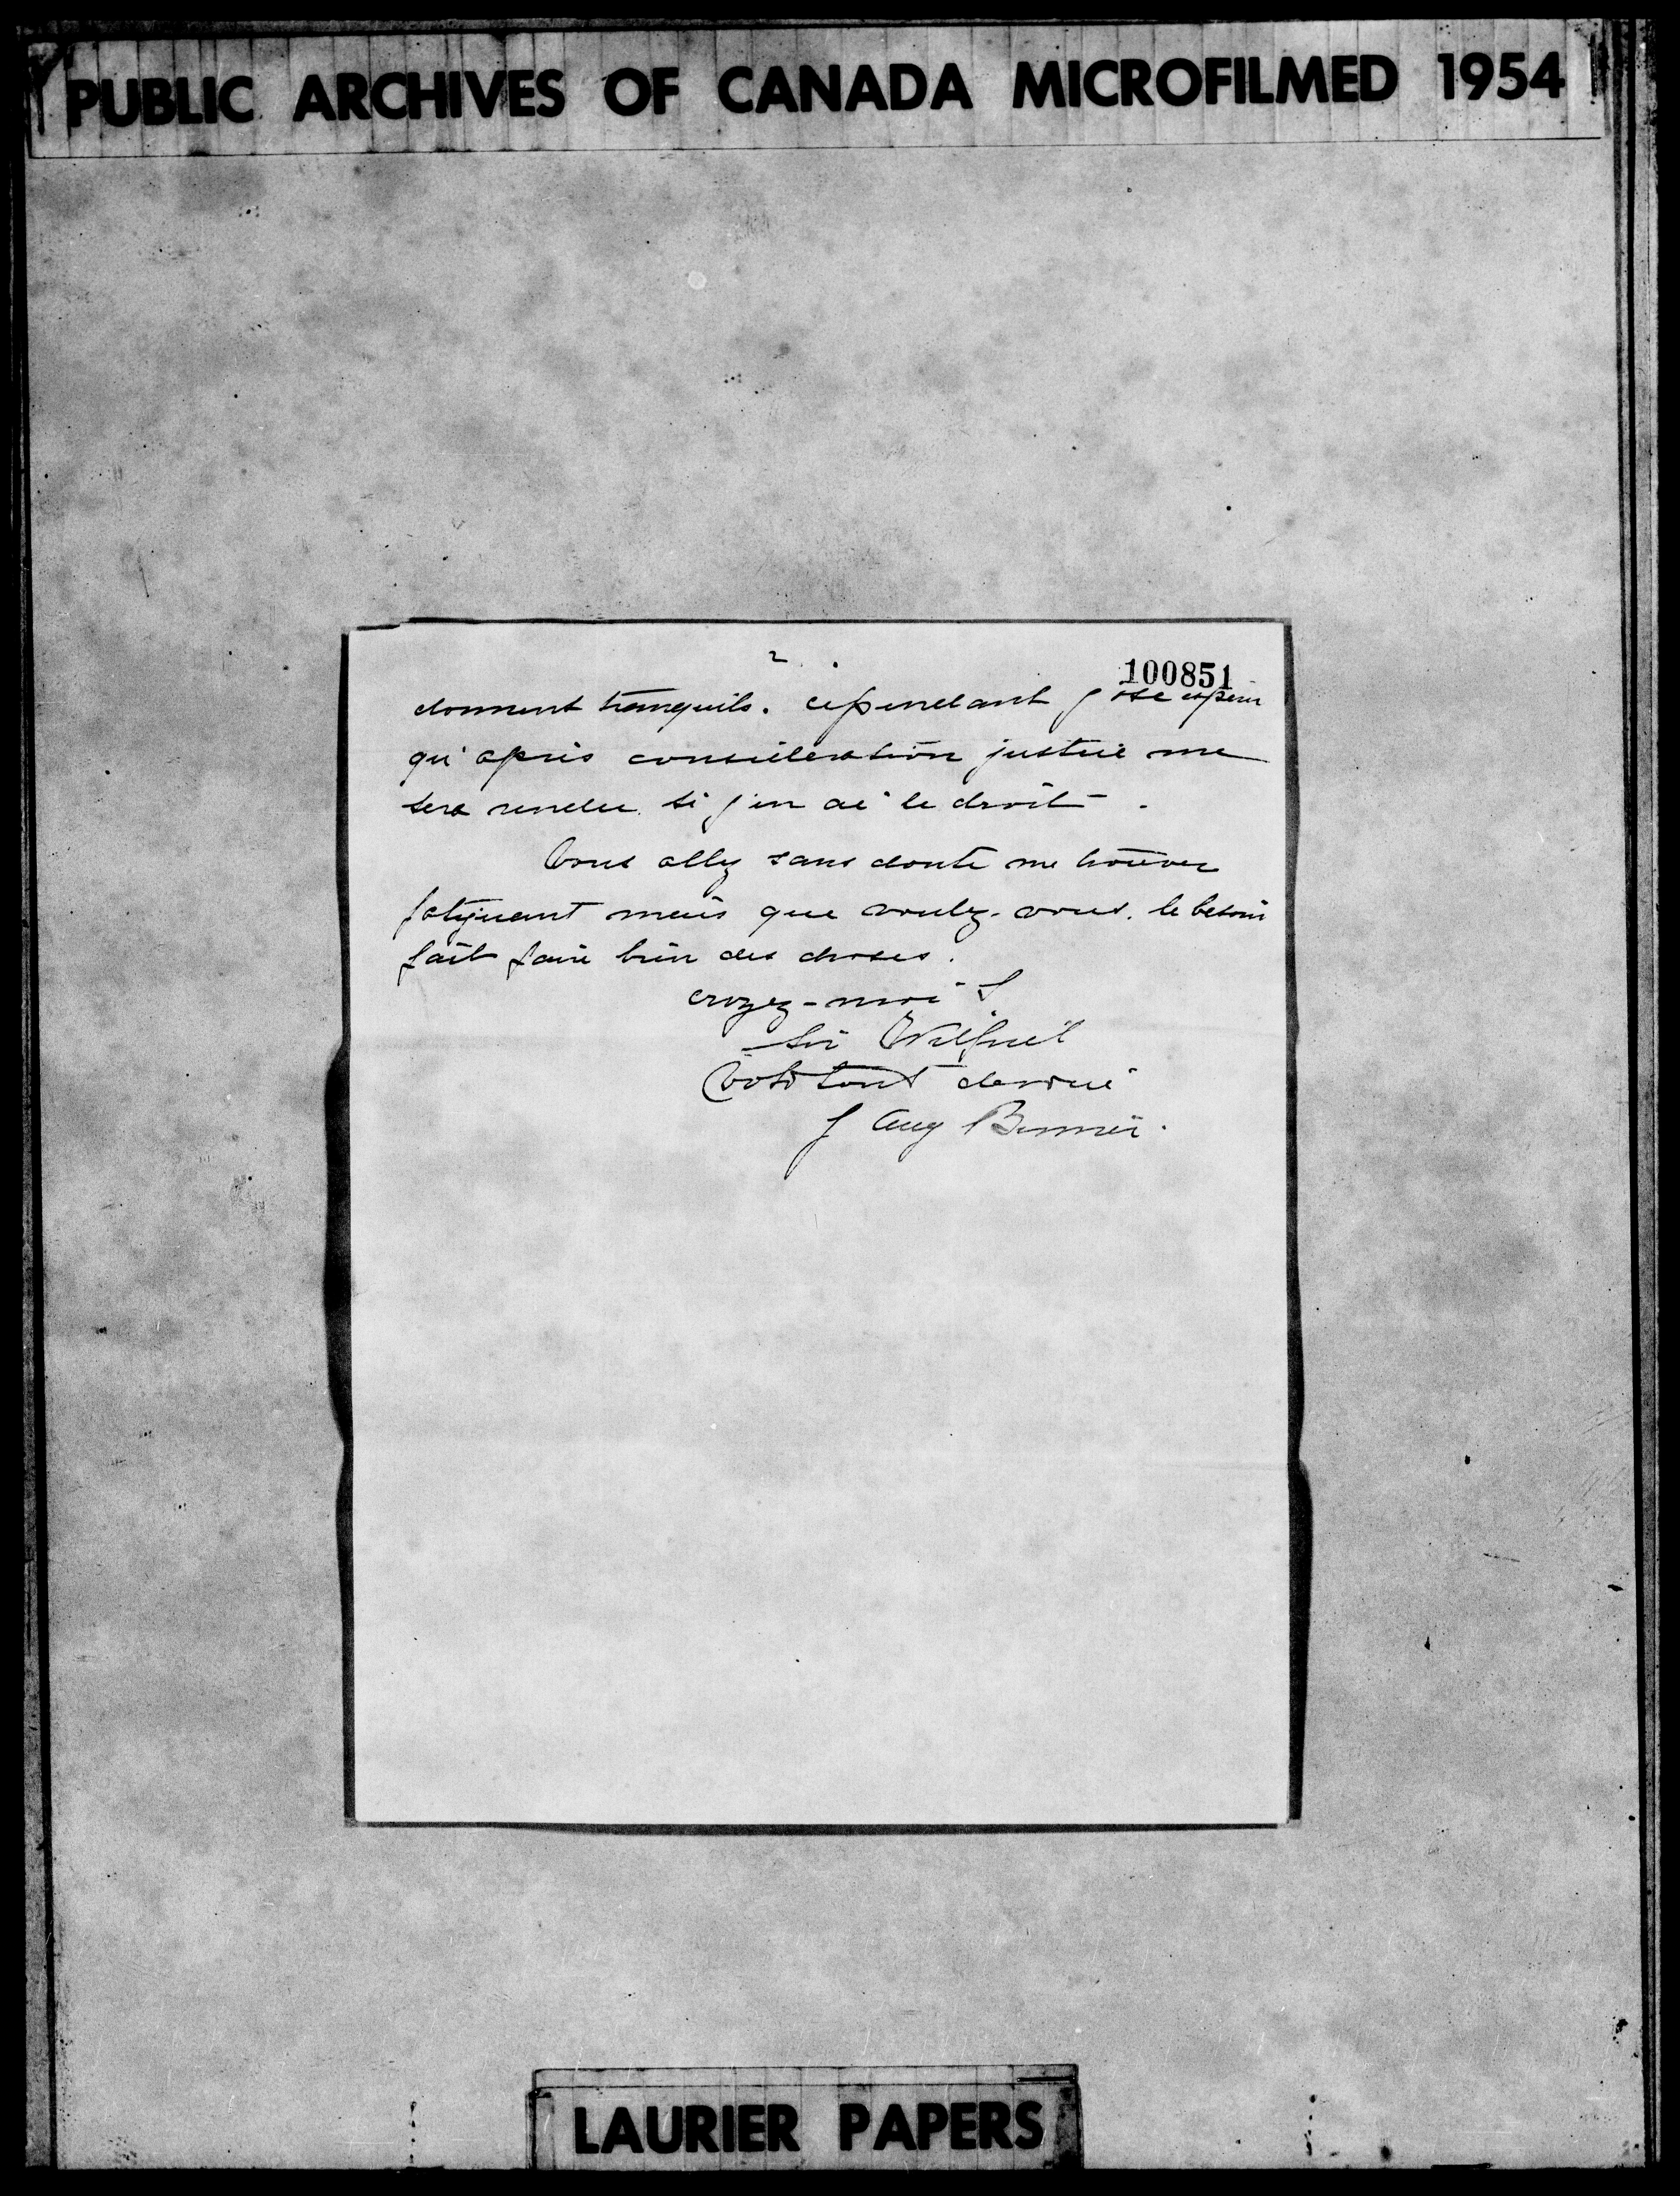 PUBLIC ARCHIVES OF CANADA MICROFILMED 1954
2
100851
donnent tranquils. cependant j'ose espérer
qu'après considération justice me
sera rendue si j'en ai le droit.
Vous allez sans doute me trouver
fatiguant mais que voulez-vous. le besoin
fait faire bien des choses.
croyez-moi
Sir Wilfrid
Votre tout dévoué
J Aug Bernier.
LAURIER PAPERS